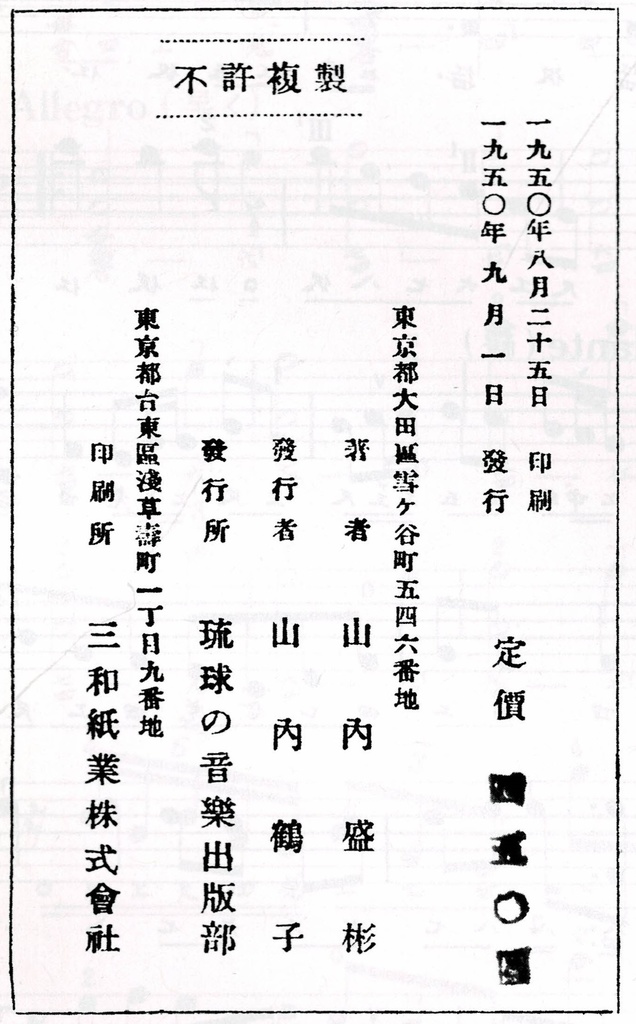 一九五〇年八月二十五日　印刷
一九五〇年九月一日　發行
定價　四五〇圓
東京都大田區雪ヶ谷町五四六番地
著者　山内盛彬
發行者　山内鶴子
發行所　琉球の音樂出版部
東京都台東區淺草壽町一丁目九番地
印刷所　三和紙業株式會社
不許複製